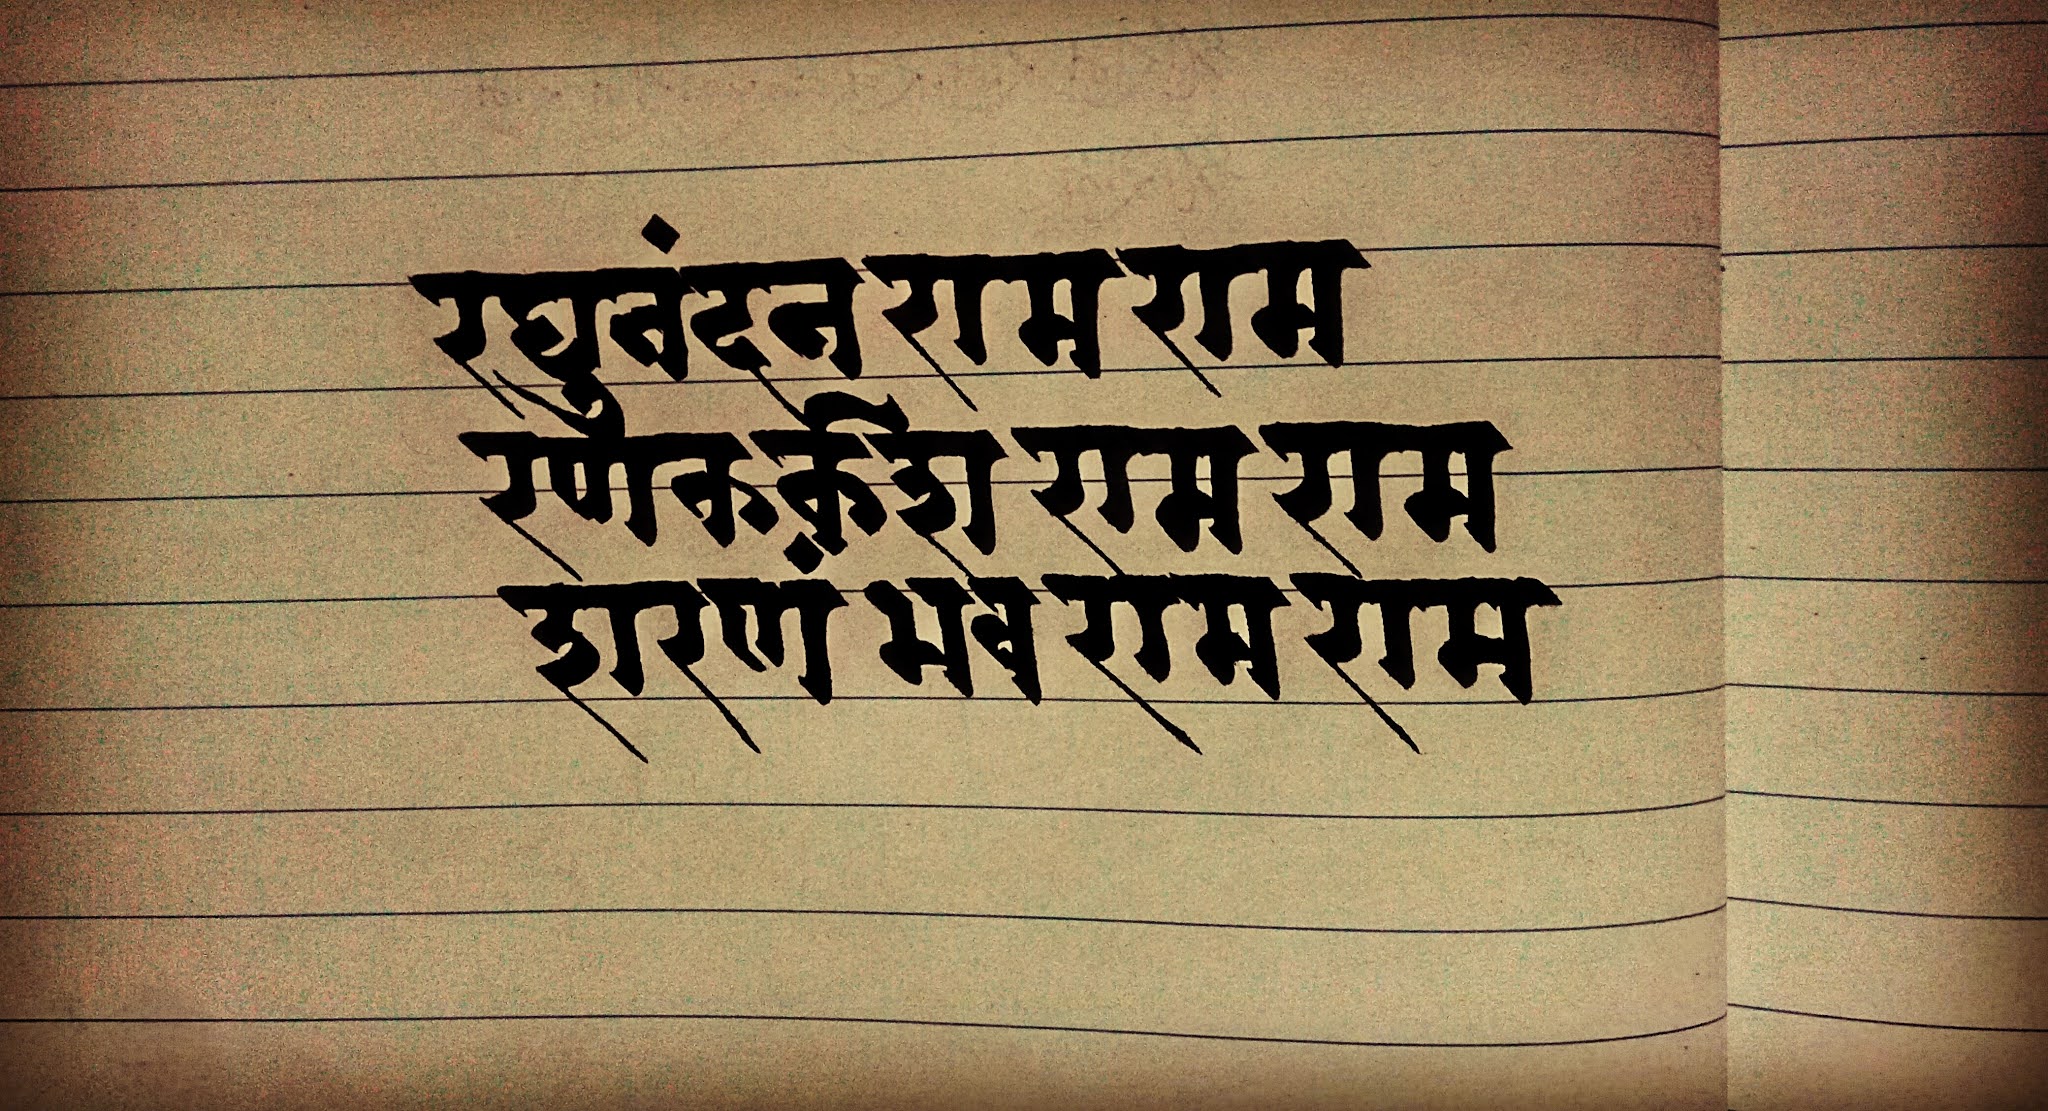 रघुनंदन राम राम
रणकर्कश राम राम
शरणं भव राम राम